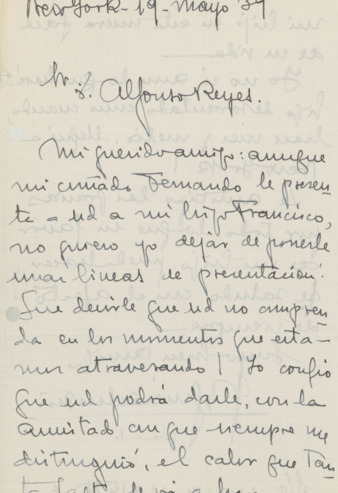 New York - 19 - Mayo 39
Sr. D. Alfonso Reyes.
Mi querido amigo: aunque
mi cuñado Fernando le presen-
te a ud a mi hijo Francisco,
no quiero yo dejar de ponerle
unas lineas de presentación.
Que decirle que ud no compren-
da en los momentos que esta-
mos atravesando! Yo confio
que ud podrá darle, con la
amistad con que siempre me
distinguió, el calor que tan-
ta falta le va a